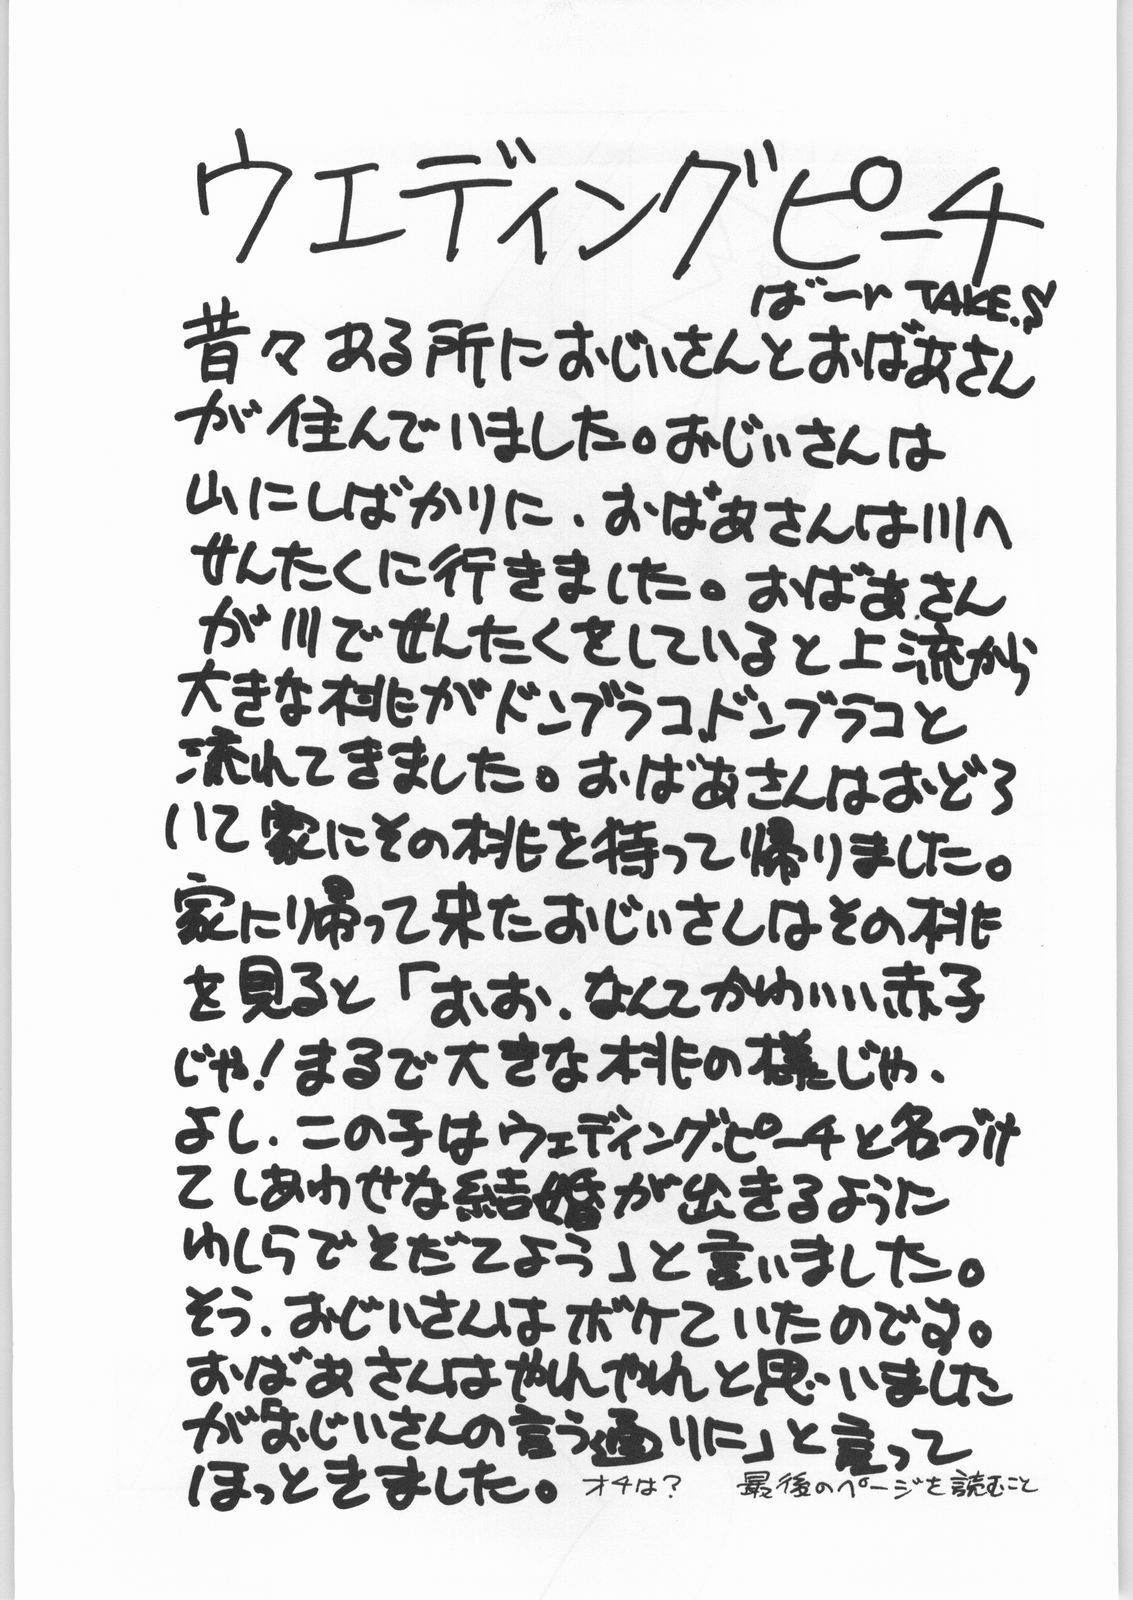 ウエディングピーチ
ばーr TAKE.S
昔々ある所におじぃさんとおばあさん
が住んでいました。おじぃさんは
山にしばかりに、おばあさんは川へ
せんたくに行きました。おばあさん
が川でせんたくをしていると上流から
大きな桃がドンブラコ、ドンブラコと
流れてきました。おばあさんはおどろ
いて家にその桃を持って帰りました。
家に帰って来たおじぃさんはその桃
を見ると「おお、なんてかわいい赤子
じゃ!まるで大きな桃の様じゃ、
よし、この子はウェディング・ピーチと名づけ
てしあわせな結婚が出きるように
わしらでそだてよう」と言いました。
そう、おじぃさんはボケていたのです。
おばあさんはやれやれと思いました
が「おじいさんの言う通りに」と言って
ほっときました。 オチは? 最後のページを読むこと